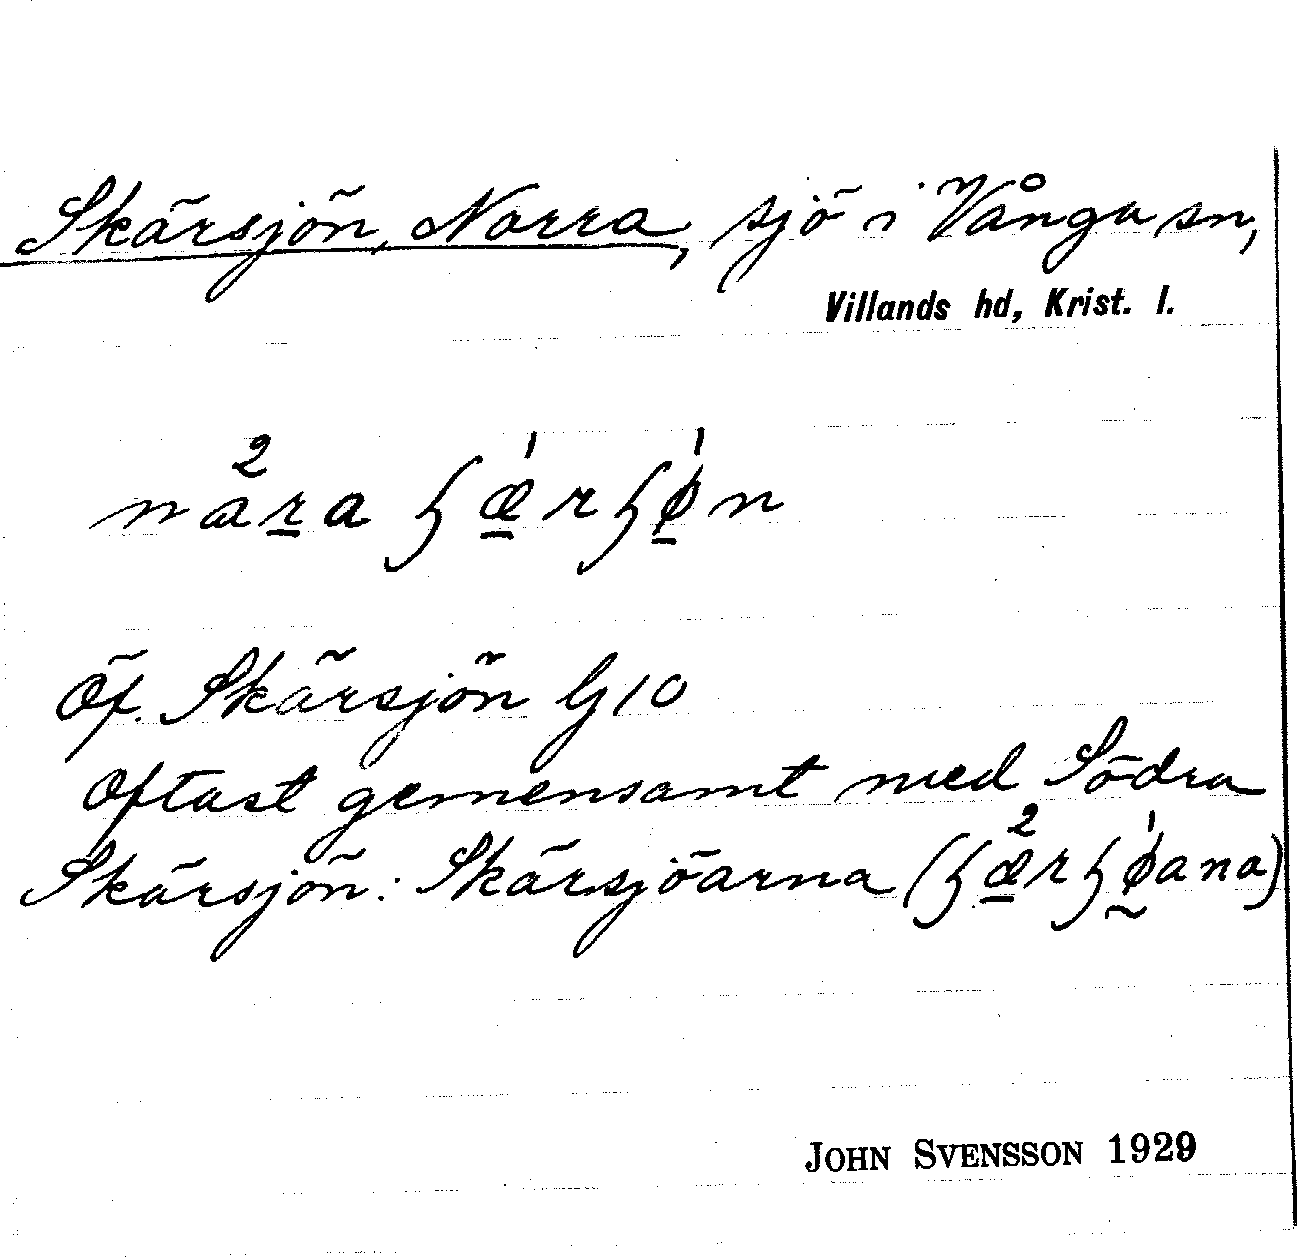 Skärsjön, Norra, sjö i Vånga sn,
Villands hd, Krist. l.
Öf. Skärsjön G10
Oftast gemensamt med Södra
Skärsjön: Skärsjöarna
JOHN SVENSSON 1929